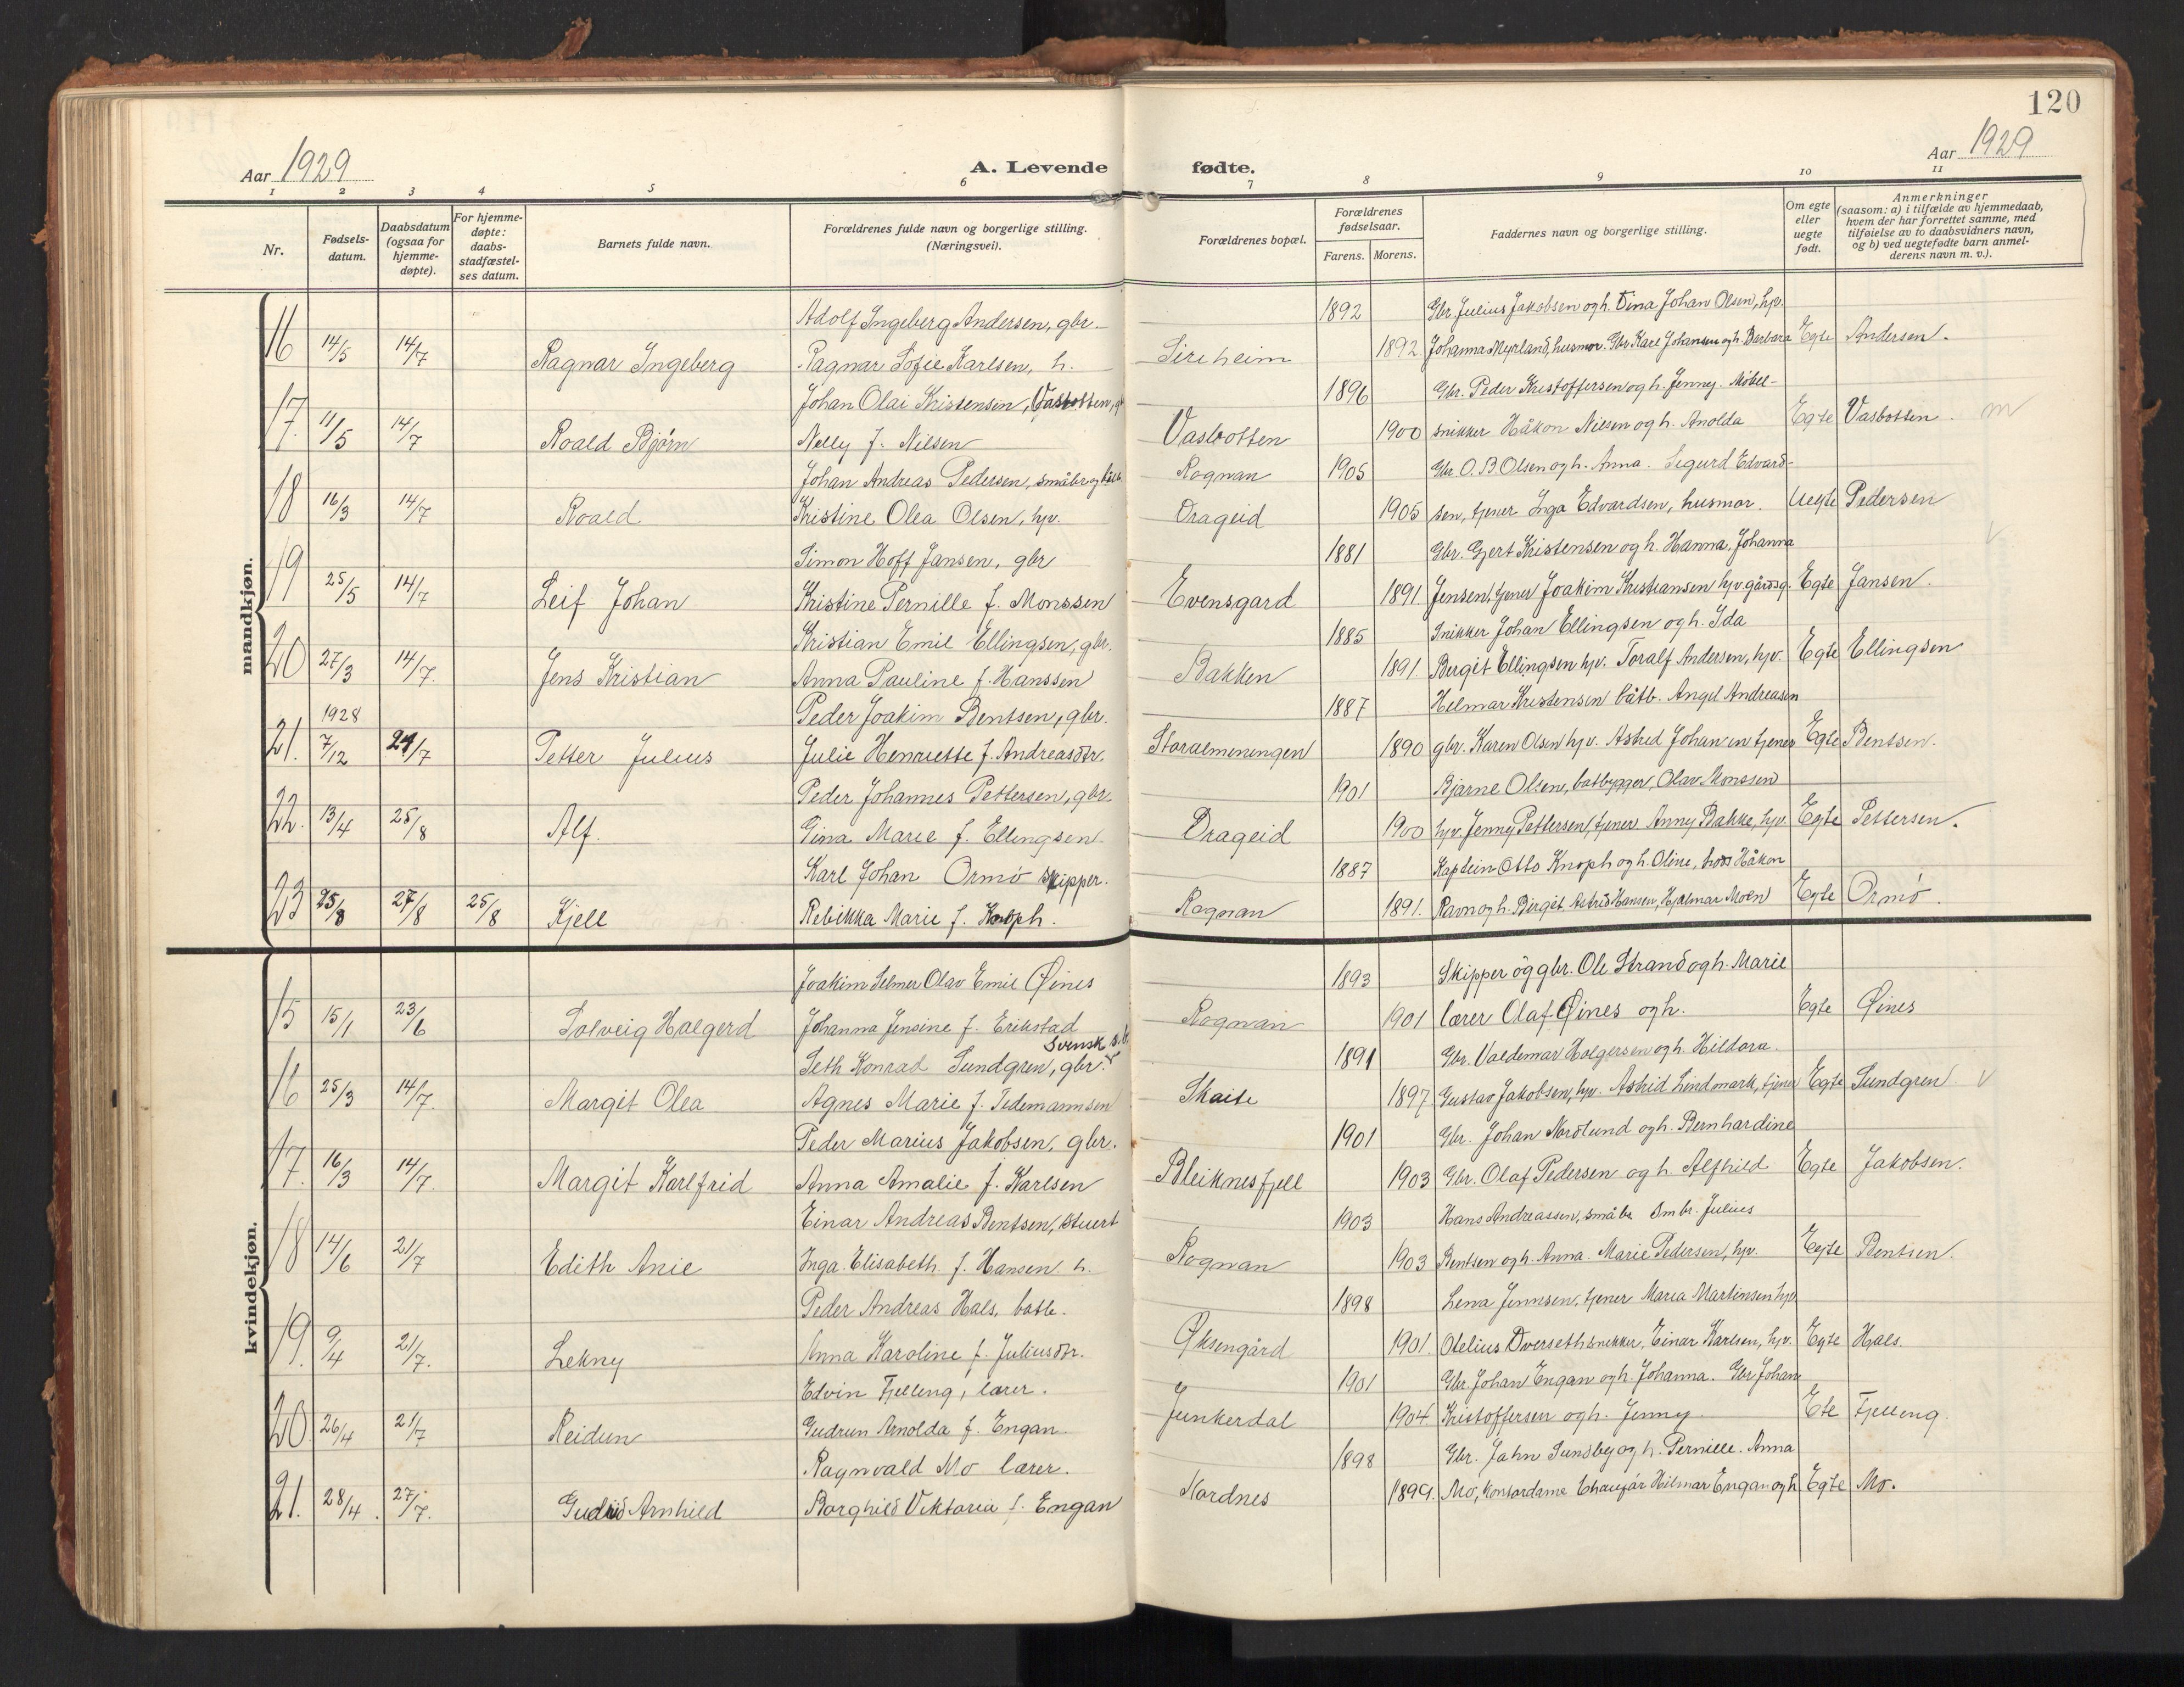 120
Aar 1929
A. Levende fødte.
Aar 1929
1 2 3 4 5 6 7 8 9 10 11
Nr.
Fødselsdatum.
Daabsdatum (ogsaa for hjemmedøpte).
For hjemmedøpte: daabsstadfæstelses datum.
Barnets fulde navn.
Forældrenes fulde navn og borgerlige stilling. (Næringsvei).
Forældrenes bopæl.
Forældrenes fødselsaar.
Farens. Morens.
Faddernes navn og borgerlige stilling.
Om egte eller uegte født.
Anmerkninger (saasom: a) i tilfælde av hjemmedaab, hvem der har forrettet samme, med tilføielse av to daabsvidners navn, og b) ved uegtefødte barn anmelderens navn m. v.).
mandkjøn.
Adolf Ingeberg Andersen, gbr. 1892 Gbr. Julius Jakobsen og h. Dina Johan Olsen, hjv.
16 14/5 14/7 Ragnar Ingeberg Ragnar Sofie Karlsen, h. 1892 Johanna Myrland, husmor. Gbr. Karl Johansen og h. Barbara Egte Andersen.
Johan Olai Kristensen, Vasbotten, 1896 Gbr. Peder Kristoffersen og h. Jenny. Møbel-
17. 11/5 14/7 Roald Bjørn Nelly f. Nilsen Vasbotten 1900 snikker Håkon Nilsen og h. Anolda Egte Vasbotten. m
Johan Andreas Pedersen, småbr. og Rognan 1905 Gbr. O. B. Olsen og h. Anna. Sigurd Edvard-
18 16/3 14/7 Roald Kristine Olea Olsen, hjv. Drageid 1905 sen, tjener Inga Edvardsen, husmor. Uegte Pedersen
Simon Hoff Jansen, gbr 1881 Gbr. Gjert Kristensen og h. Hanna, Johanna v
19 25/5 14/7 Leif Johan Kristine Pernille f. Monssen Evensgard 1891 Jensen, tjener Joakim Kristiansen hjv. gårdsg. Egte Jansen.
Kristian Emil Ellingsen, gbr. 1885 Snikker Johan Ellingsen og h. Ida
20 27/3 14/7. Jens Kristian Anna Pauline f. Hanssen Bakken 1891. Bergit Ellingsen hjv. Toralf Andersen, hjv. Egte Ellingsen
1928 Peder Joakim Bentsen, gbr. 1887 Helmar Kristensen båtb. Angel Andreasen
21. 7/12 21/7 Petter Julius Julie Henriette f. Andreasdtr. Storalmeningen 1890 gbr. Karen Olsen hjv. Astrid Johansen tjener Egte Bentsen.
Peder Johannes Pettersen, gbr. 1901 Bjarne Olsen, båtbygger, Olav Monssen
22. 13/4 25/8 Alf. Gina Marie f. Ellingsen. Drageid 1900 hjv. Jenny Pettersen, tjener Anny Bakke, hjv. Egte Pettersen.
Karl Johan Ormö skipper. 1887 Kaptein Otto Knoph og h. Oline, Håkon
23 25/8 27/8 25/8 Kjell Rebikka Marie f. Knoph. Rognan 1891. Ravn og h. Birgit Astrid Hansen, Hjalmar Moen Egte Ormö.
kvindekjøn.
Joakim Selmer Olav Emil Øines 1893 Skipper og gbr. Ole Strand og h. Marie
15 15/1 23/6 Solveig Holgerd Johanna Jensine f. Erikstad Rognan 1901 lærer Olaf Øines og h. Egte Øines
Svensk
Seth Konrad Sundgren, gbr. 1891 Gbr. Valdemar Holgersen og h. Hildora.
16 25/3 14/7. Margit Olea Agnes Marie f. Tedemannsen Skaite 1897 Gustav Jakobsen, hjv. Astrid Lindmark, tjener Egte Sundgren v
Peder Marius Jakobsen, gbr. 1901 Gbr. Johan Nordlund og h. Bernhardine
17. 16/3 14/7. Margit Karlfrid Anna Amalie f. Karlsen Bleiknesfjell 1903 Gbr. Olaf Pedersen og h. Alfhild Egte Jakobsen.
Einar Andreas Bentsen, stuert 1903 Hans Andreassen, småbr. Smbr. Julius
18 14/6 21/7 Edith Anie Inga Elisabeth f. Hansen h. Rognan 1903 Bentsen og h. Anna. Marie Pedersen, hjv. Egte Bentsen.
Peder Andreas Hals, båtb. 1898 Lena Jennsen, tjener Maria Martinsen hjv
19. 9/4 21/7. Lekny Anna Karoline f. Juliusdtr. Øksengård 1901. Otelius Dverseth snekker, Einar Karlsen, hjv. Egte Hals.
Edvin Fjelleng, lærer. 1901 Gbr. Johan Engan og h. Johanna. Gbr. Johan
20. 26/4 21/7 Reidun Gudrun Arnolda f. Engan. Junkerdal 1904 Kristoffersen og h. Jenny. Ete Fjelleng.
Ragnvald Mo lærer. 1898 Gbr. Jahn Sundby og h. Pernille. Anna
21. 28/4. 27/7. Gudrid Arnhild Borghild Viktoria f. Engan Nordnes 1899. Mo, kontordame Chaufør Hilmar Engan og h Egte Mo.